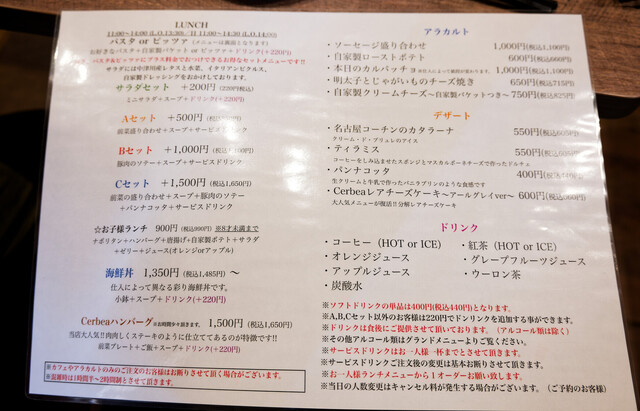 LUNCH
11:00～14:00 (L.O.13:30) /日 11:00～14:30 (L.O.14:00)
パスタ or ピッツァ (メニューは裏面となります)
お好きなパスタ+自家製バケット or ピッツァ+ドリンク(+220円)
パスタ&ピッツァにプラス料金でおつけできるお得なセットメニューです!!
サラダには中津川産レタスと水菜、イタリアンピクルス、
自家製ドレッシングをおかけしております。
サラダセット +200円 (220円税込)
ミニサラダ+スープ+ドリンク(+220円)
Aセット +500円
前菜盛り合わせ+スープ+サービスドリンク
Bセット +1,000円
豚肉のソテー+スープ+サービスドリンク
Cセット +1,500円 (税込1,650円)
前菜の盛り合わせ+スープ+豚肉のソテー
+パンナコッタ+サービスドリンク
☆お子様ランチ 900円 (税込990円) ※8才未満まで
ナポリタン+ハンバーグ+唐揚げ+自家製ポテト+サラダ
+ゼリー+ジュース(オレンジorアップル)
海鮮丼 1,350円 (税込1,485円) ～
仕入によって異なる彩り海鮮丼です。
小鉢+スープ+ドリンク(+220円)
Cerbeaハンバーグ ※お時間少々頂きます。 1,500円 (税込1,650円)
当店大人気!!肉肉しくステーキのように仕立ててあるのが特徴です!!
前菜プレート+ご飯+スープ+ドリンク(+220円)
※カフェやアラカルトのみのご注文のお客様はお断りさせて頂く場合がございます。
※混雑時は1時間半～2時間制とさせて頂きます。
アラカルト
・ソーセージ盛り合わせ 1,000円(税込1,100円)
・自家製ローストポテト 600円(税込660円)
・本日のカルパッチョ ※仕入によって種類が変わります。 1,000円(税込1,100円)
・明太子とじゃがいものチーズ焼き 650円(税込715円)
・自家製クリームチーズ～自家製バケットつき～ 750円(税込825円)
デザート
・名古屋コーチンのカタラーナ 550円(税込605円)
クリーム・ド・ブリュレのアイス
・ティラミス 550円(税込605円)
コーヒーをしみ込ませたスポンジとマスカルポーネチーズで作ったドルチェ
・パンナコッタ 400円(税込440円)
生クリームと牛乳で作ったバニラプリンのような食感です
・Cerbeaレアチーズケーキ～アールグレイver～ 600円(税込660円)
大人気メニューが復活!!分解レアチーズケーキ
ドリンク
・コーヒー (HOT or ICE) ・紅茶 (HOT or ICE)
・オレンジジュース ・グレープフルーツジュース
・アップルジュース ・ウーロン茶
・炭酸水
※ソフトドリンクの単品は400円(税込440円)となります。
※A,B,Cセット以外のお客様は220円でドンリンクを追加する事ができます。
※ドリンクは食後にご提供させて頂いております。(アルコール類は除く)
※その他アルコール類はグランドメニューよりご覧ください。
※サービスドリンクはお一人様一杯までとさせて頂きます。
※サービスドリンクご注文後の変更は基本お断りさせて頂きます。
※お一人様ランチメニューから1オーダーお願い致します。
※当日の人数変更はキャンセル料が発生する場合がございます。(ご予約のお客様)